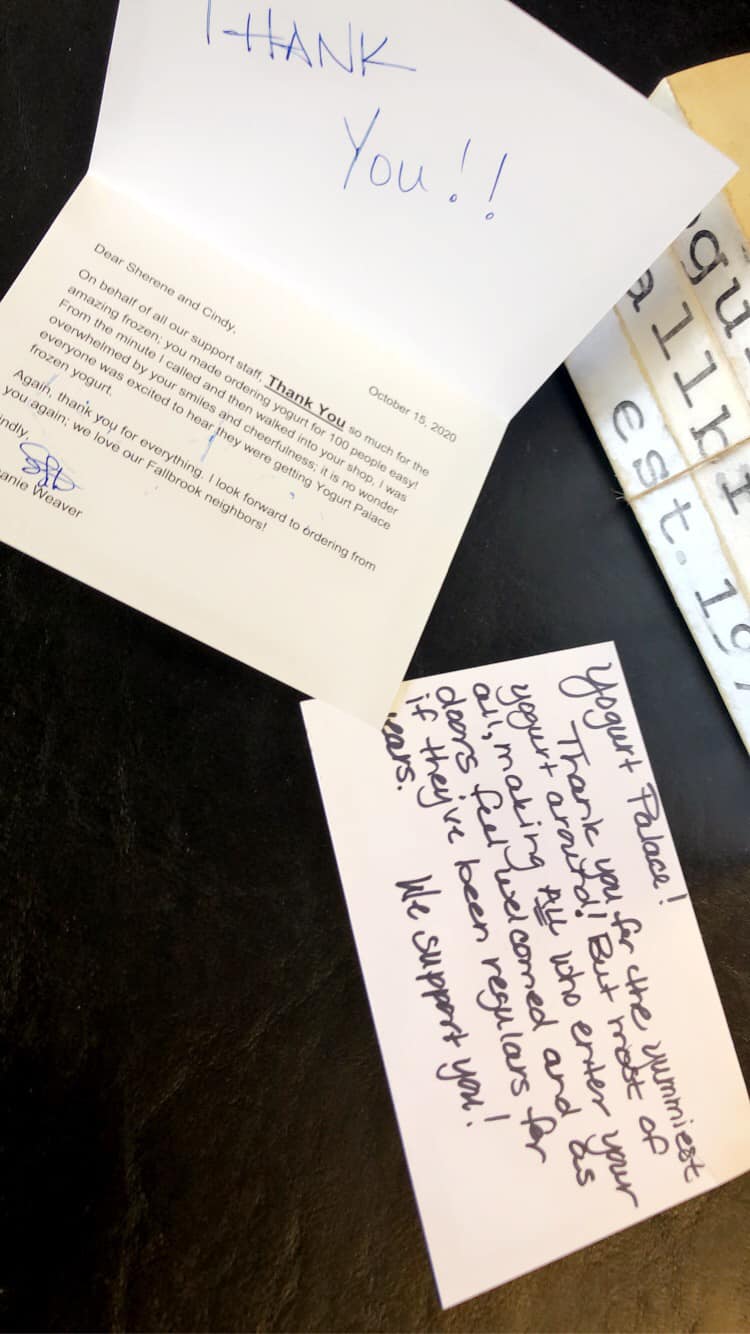 THANK
You!!
October 15, 2020
Dear Sherene and Cindy,
On behalf of all our support staff, Thank You so much for the
amazing frozen; you made ordering yogurt for 100 people easy!
From the minute I called and then walked into your shop, I was
overwhelmed by your smiles and cheerfulness; it is no wonder
everyone was excited to hear they were getting Yogurt Palace
frozen yogurt.
Again, thank you for everything. I look forward to ordering from
you again; we love our Fallbrook neighbors!
indly,
anie Weaver
Yogurt Palace!
Thank you for the yummiest
yogurt around! But most of
all, making ALL who enter your
doors feel welcomed and as
if they've been regulars for
ears. We support you!
ogu
allb
est. 19